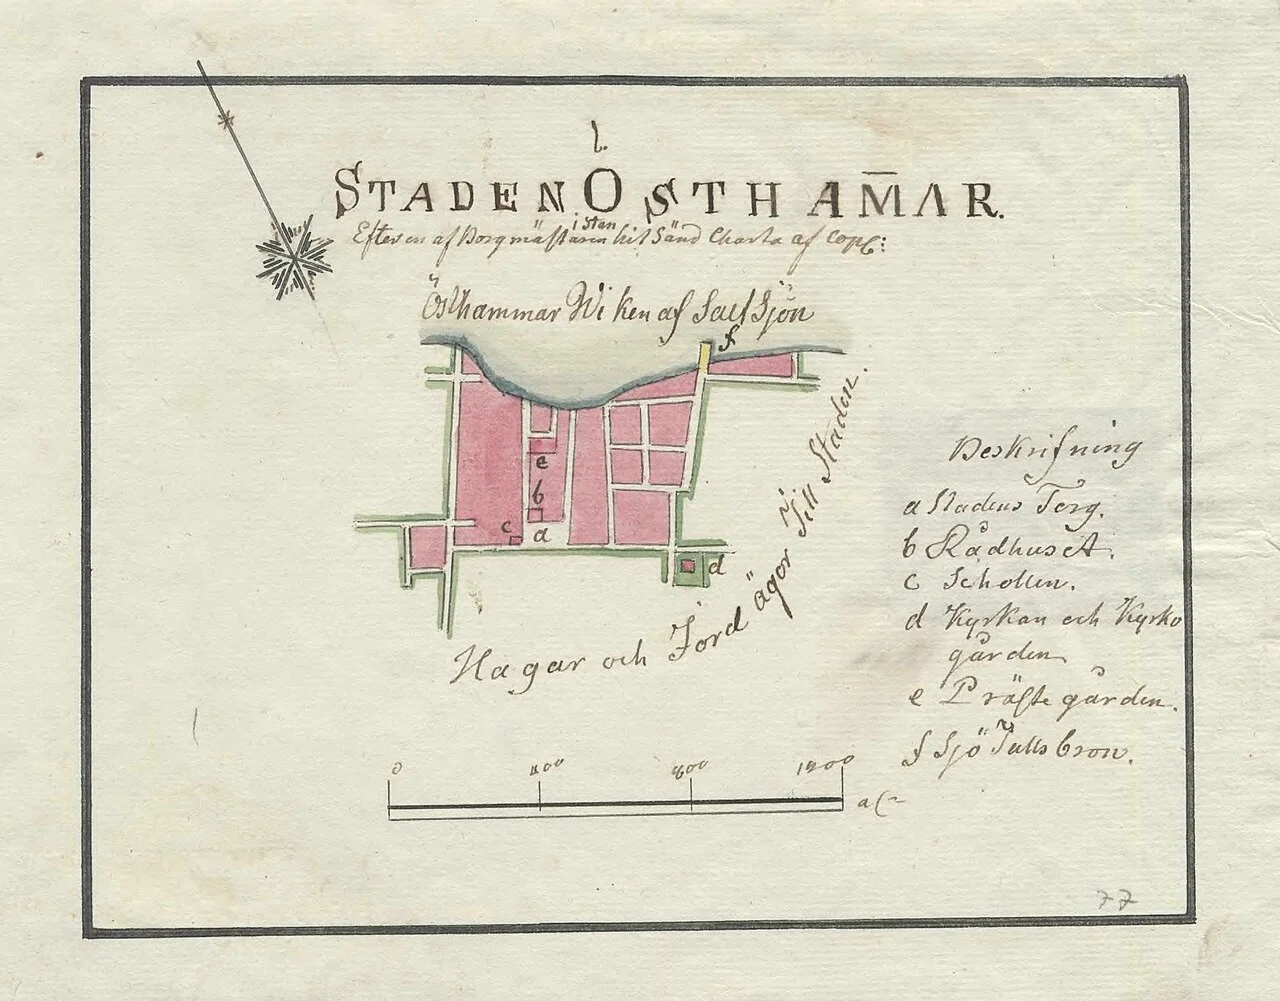 l.
STADEN ÖSTHAM̄AR.
i Stan
Efter en af Borgmästaren hit Sänd Charta af Cop:
Östhammar Wiken af SaltSjön
f
e
b
c a
d
Hagar och Jord ägor Till Staden.
Beskrifning
a Stadens Torg.
b Rådhuset.
c Scholen.
d Kyrkan och Kyrko
gården
e Präste gården.
f Sjö Tulls bron.
0 400 800 1200
77